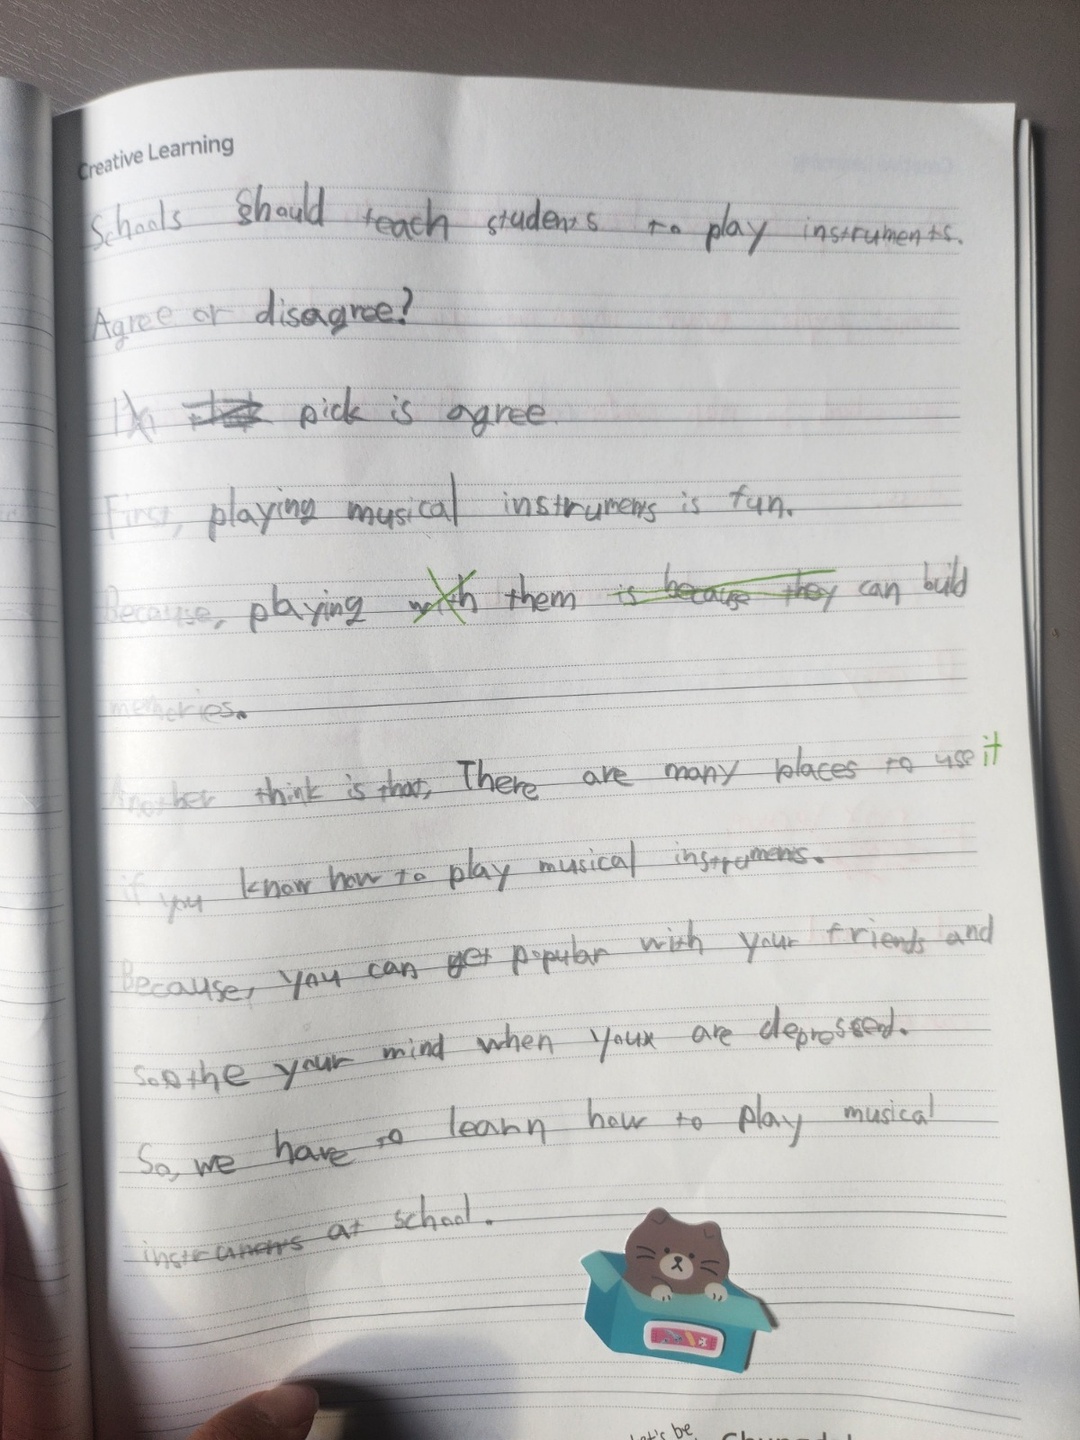 Creative Learning
Schools Should teach students to play instruments.
Agree or disagree?
pick is agree.
First, playing musical instruments is fun.
Because, playing with them is because they can build
memories.
Another think is that, There are many places to use it
if you know how to play musical instruments.
Because, you can get popular with your friends and
soothe your mind when you are depressed.
So, we have to learn how to play musical
instruments at school.
let's be